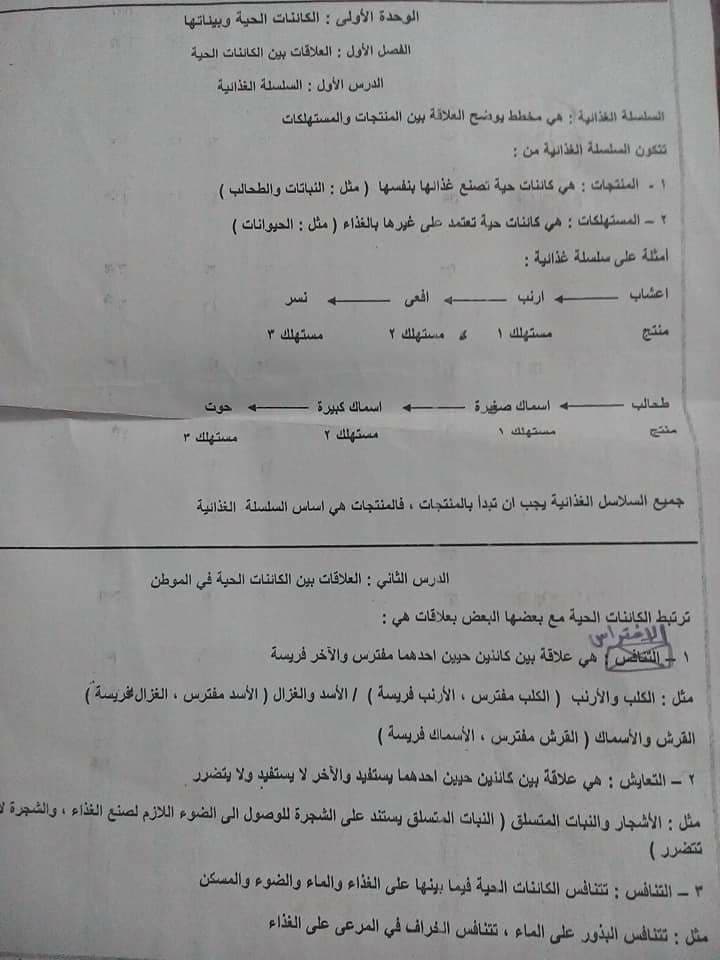 الوحدة الأولى : الكائنات الحية وبيئاتها
الفصل الأول : العلاقات بين الكائنات الحية
الدرس الأول : السلسلة الغذائية
السلسلة الغذائية : هي مخطط يوضح العلاقة بين المنتجات والمستهلكات
تتكون السلسلة الغذائية من :
١ - المنتجات : هي كائنات حية تصنع غذائها بنفسها ( مثل : النباتات والطحالب )
٢ – المستهلكات : هي كائنات حية تعتمد على غيرها بالغذاء ( مثل : الحيوانات )
أمثلة على سلسلة غذائية :
اعشاب ← ارنب ← افعى ← نسر
منتج مستهلك ١ مستهلك ٢ مستهلك ٣
طحالب ← اسماك صغيرة ← اسماك كبيرة ← حوت
منتج مستهلك ١ مستهلك ٢ مستهلك ٣
جميع السلاسل الغذائية يجب ان تبدأ بالمنتجات ، فالمنتجات هي اساس السلسلة الغذائية
الدرس الثاني : العلاقات بين الكائنات الحية في الموطن
ترتبط الكائنات الحية مع بعضها البعض بعلاقات هي :
الافتراس
١ – التنافس : هي علاقة بين كائنين حيين احدهما مفترس والآخر فريسة
مثل : الكلب والأرنب ( الكلب مفترس ، الأرنب فريسة ) / الأسد والغزال ( الأسد مفترس ، الغزال فريسة )
القرش والأسماك ( القرش مفترس ، الأسماك فريسة )
٢ – التعايش : هي علاقة بين كائنين حيين احدهما يستفيد والآخر لا يستفيد ولا يتضرر
مثل : الأشجار والنبات المتسلق ( النبات المتسلق يستند على الشجرة للوصول الى الضوء اللازم لصنع الغذاء ، والشجرة لا
تتضرر )
٣ – التنافس : تتنافس الكائنات الحية فيما بينها على الغذاء والماء والضوء والمسكن
مثل : تتنافس البذور على الماء ، تتنافس الخراف في المرعى على الغذاء